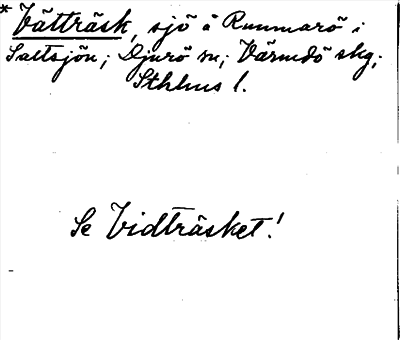 * Vätträsk, sjö å Runmarö i
Saltsjön; Djurö sn; Värmdö skg;
Sthlms l.
Se Vidträsket!